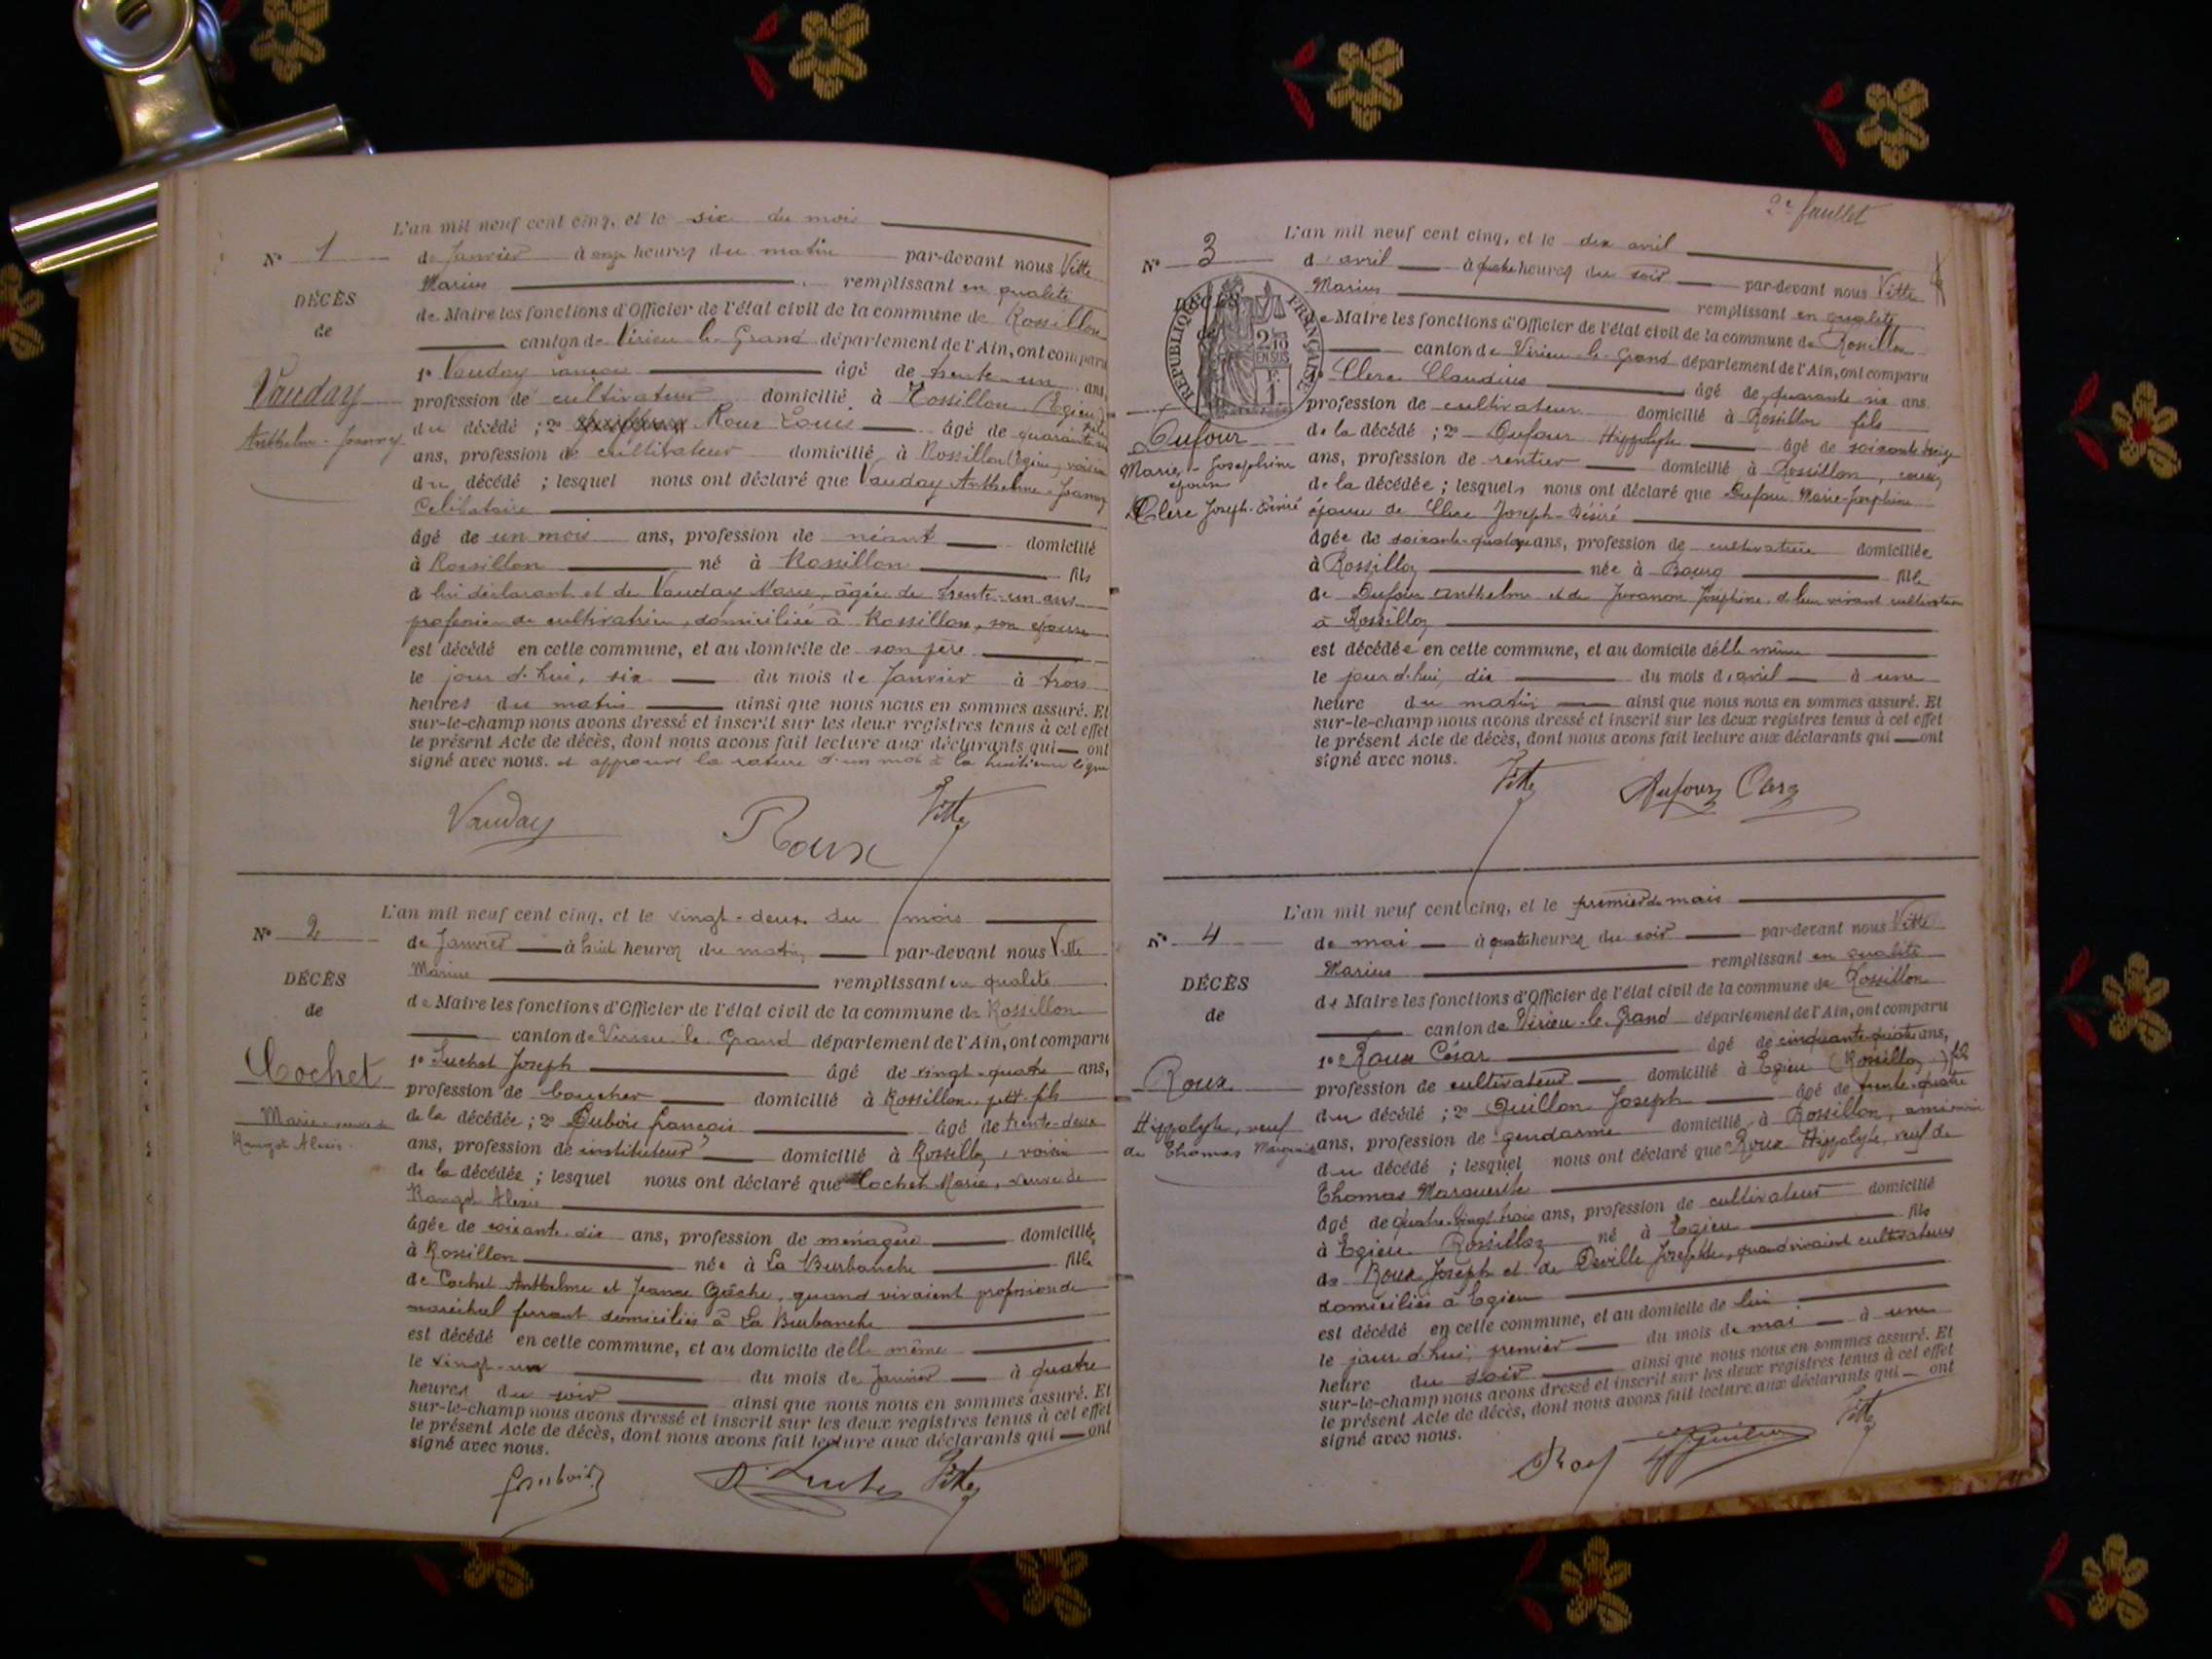 L'an mil neuf cent cinq, et le six du mois
N° 1 de Janvier à onze heures du matin par-devant nous Vitte
Marius remplissant en qualité
DÉCÈS
de Maire les fonctions d'Officier de l'état civil de la commune de Rossillon
de
canton de Virieu-le-Grand département de l'Ain, ont comparu
1° Vauday âgé de trente-un ans,
Vauday
profession de cultivateur domicilié à Rossillon (Egieu) père
Anthelme-Joanny
du décédé ; 2° Roux Louis âgé de quarante
ans, profession de cultivateur domicilié à Rossillon (Egieu) voisin
du décédé ; lesquels nous ont déclaré que Vauday Anthelme-Joanny
Celibataire
âgé de un mois ans, profession de néant domicilié
à Rossillon né à Rossillon fils
de lui déclarant et de Vauday Marie, âgée de trente-un ans
profession de cultivatrice, domiciliée à Rossillon, son épouse
est décédé en cette commune, et au domicile de son père
le jour d'hui, six du mois de Janvier à trois
heures du matin ainsi que nous nous en sommes assuré. Et
sur-le-champ nous avons dressé et inscrit sur les deux registres tenus à cet effet
le présent Acte de décès, dont nous avons fait lecture aux déclarants qui ont
signé avec nous. et approuvé la rature d'un mot à la huitième ligne
Vauday Roux Vitte
L'an mil neuf cent cinq, et le vingt-deux du mois
N° 2 de Janvier à huit heures du matin par-devant nous Vitte
Marius remplissant en qualité
DÉCÈS
de Maire les fonctions d'Officier de l'état civil de la commune de Rossillon
de
canton de Virieu-le-Grand département de l'Ain, ont comparu
1° Suchet Joseph âgé de vingt-quatre ans,
Cochet
profession de boucher domicilié à Rossillon, petit-fils
Marie, veuve de
de la décédée ; 2° Dubois françois âgé de trente-deux
Rangot Alexis
ans, profession de instituteur domicilié à Rossillon, voisin
de la décédée ; lesquels nous ont déclaré que Cochet Marie, veuve de
Rangot Alexis
âgée de soixante-dix ans, profession de ménagère domiciliée
à Rossillon née à La Burbanche fille
de Cochet Anthelme et Jeanne Gâche, quand vivaient profession de
maréchal ferrant domiciliés à La Burbanche
est décédé en cette commune, et au domicile d'elle même
le vingt-un du mois de Janvier à quatre
heures du soir ainsi que nous nous en sommes assuré. Et
sur-le-champ nous avons dressé et inscrit sur les deux registres tenus à cet effet
le présent Acte de décès, dont nous avons fait lecture aux déclarants qui ont
signé avec nous.
Dubois Vitte
2e feuillet
L'an mil neuf cent cinq, et le dix avril
N° 3 d'avril à quatre heures du soir par-devant nous Vitte
Marius remplissant en qualité
DÉCÈS
de
RÉPUBLIQUE FRANÇAISE
2/10 EN SUS
de Maire les fonctions d'Officier de l'état civil de la commune de Rossillon
canton de Virieu-le-Grand département de l'Ain, ont comparu
1° Clerc Claudius âgé de quarante six ans
profession de cultivateur domicilié à Rossillon fils
Dufour
de la décédé ; 2° Dufour Hippolyte âgé de soixante seize
Marie-Joséphine
ans, profession de rentier domicilié à Rossillon, cousin
épouse
de la décédée ; lesquels nous ont déclaré que Dufour Marie-Joséphine
Clerc Joseph-Désiré
épouse de Clerc Joseph-Désiré
âgée de soixante-quatorze ans, profession de cultivatrice domiciliée
à Rossillon née à Bourg fille
de Dufour Anthelme et de Juranon Joséphine de leur vivant cultivateurs
à Rossillon
est décédée en cette commune, et au domicile d'elle même
le jour d'hui, dix du mois d'avril à une
heure du matin ainsi que nous nous en sommes assuré. Et
sur-le-champ nous avons dressé et inscrit sur les deux registres tenus à cet effet
le présent Acte de décès, dont nous avons fait lecture aux déclarants qui ont
signé avec nous.
Vitte Dufour Clerc
L'an mil neuf cent cinq, et le premier de mai
N° 4 de mai à quatre heures du soir par-devant nous Vitte
Marius remplissant en qualité
DÉCÈS
de Maire les fonctions d'Officier de l'état civil de la commune de Rossillon
de
canton de Virieu-le-Grand département de l'Ain, ont comparu
1° Roux César âgé de cinquante-quatre ans,
Roux
profession de cultivateur domicilié à Egieu (Rossillon) fils
du décédé ; 2° Guillon Joseph âgé de trente-quatre
Hippolyte, veuf
ans, profession de gendarme domicilié à Rossillon, ami
de Thomas Marguerite
du décédé ; lesquels nous ont déclaré que Roux Hippolyte, veuf de
Thomas Marguerite
âgé de quatre-vingt-trois ans, profession de cultivateur domicilié
à Egieu Rossillon né à Egieu fils
de Roux Joseph et de Deville Josephte, quand vivaient cultivateurs
domiciliés à Egieu
est décédé en cette commune, et au domicile de lui
le jour d'hui, premier du mois de mai à une
heure du soir ainsi que nous nous en sommes assuré. Et
sur-le-champ nous avons dressé et inscrit sur les deux registres tenus à cet effet
le présent Acte de décès, dont nous avons fait lecture aux déclarants qui ont
signé avec nous.
Vitte